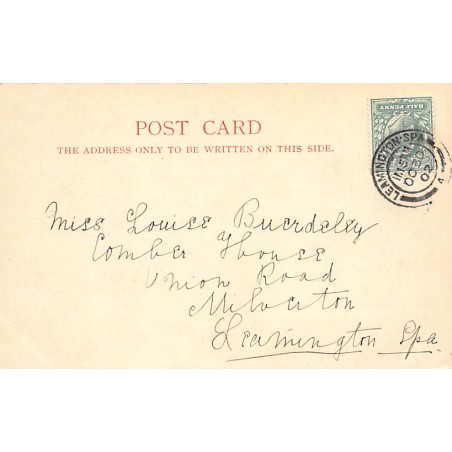 HALF PENNY
POST CARD
THE ADDRESS ONLY TO BE WRITTEN ON THIS SIDE.
LEAMINGTON-SPA
OC 30
02
Miss Louise Buerdeley
Comber House
Union Road
Milverton
Leamington Spa.